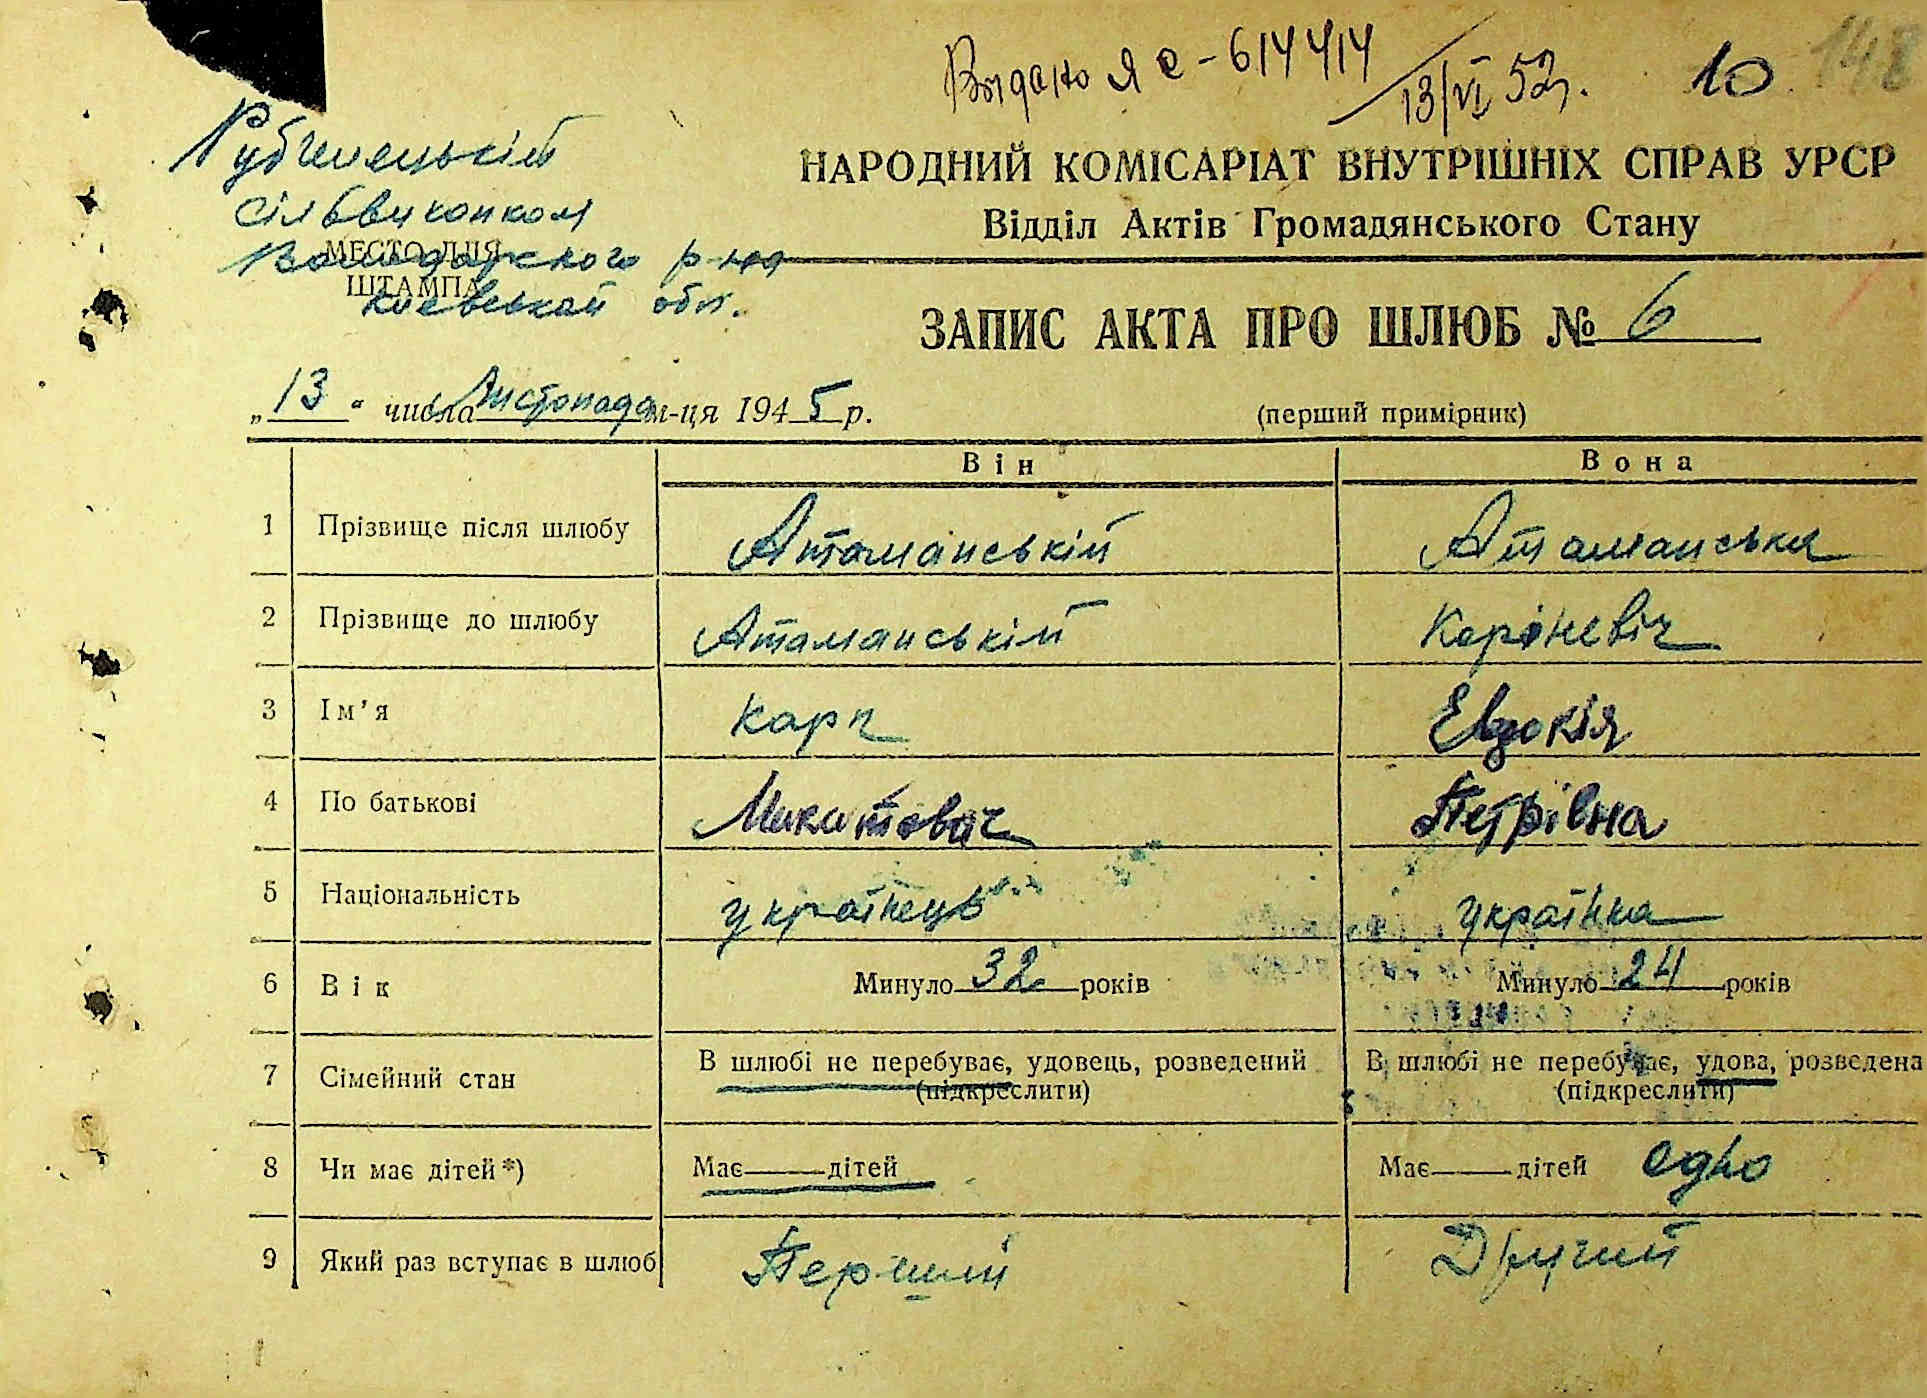 Видано Я С - 614414
13/VI 52р. 10 148
Рубченецькій
сільвиконком
НАРОДНИЙ КОМІСАРІАТ ВНУТРІШНІХ СПРАВ УРСР
Відділ Актів Громадянського Стану
МЕСТО ДЛЯ
ШТАМПА
Володарского р-на
києвськой обл.
ЗАПИС АКТА ПРО ШЛЮБ № 6
„13“ числа Листопада м-ця 1945 р.
(перший примірник)
Він Вона
1 Прізвище після шлюбу Атаманській Атаманська
2 Прізвище до шлюбу Атаманській Кароневіч
3 Ім’я Карп Евдокія
4 По батькові Микитович Петрівна
5 Національність українець українка
6 Вік Минуло 32 років Минуло 24 років
7 Сімейний стан В шлюбі не перебуває, удовець, розведений В шлюбі не перебуває, удова, розведена
(підкреслити) (підкреслити)
8 Чи має дітей*) Має дітей Має дітей одно
9 Який раз вступає в шлюб Перший Другий